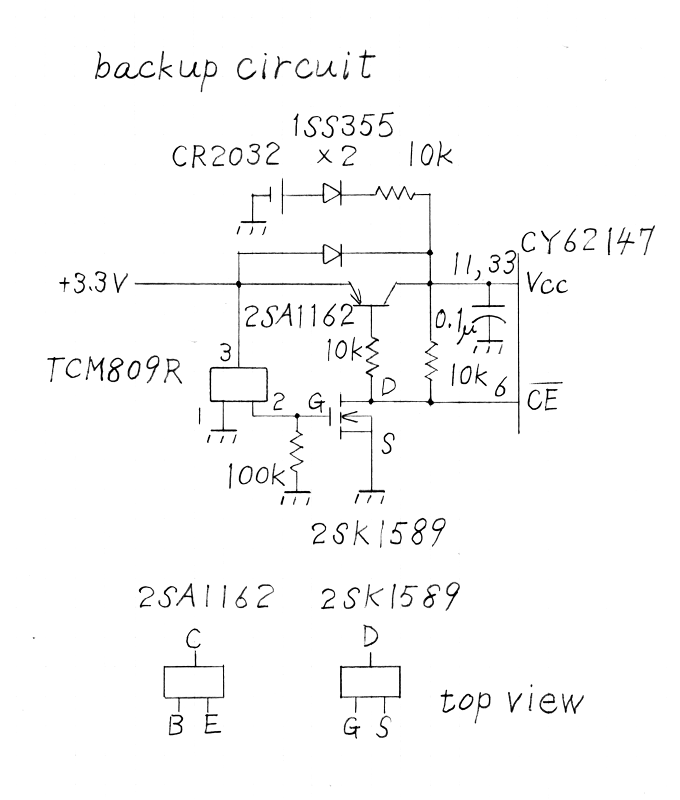 backup circuit
1SS355
CR2032 ×2 10k
CY62147
11, 33
+3.3V Vcc
2SA1162 0.1μ
10k
3
TCM809R 10k
D 6 CE
1 2 G
S
100k
2SK1589
2SA1162 2SK1589
C D
B E G S
top view